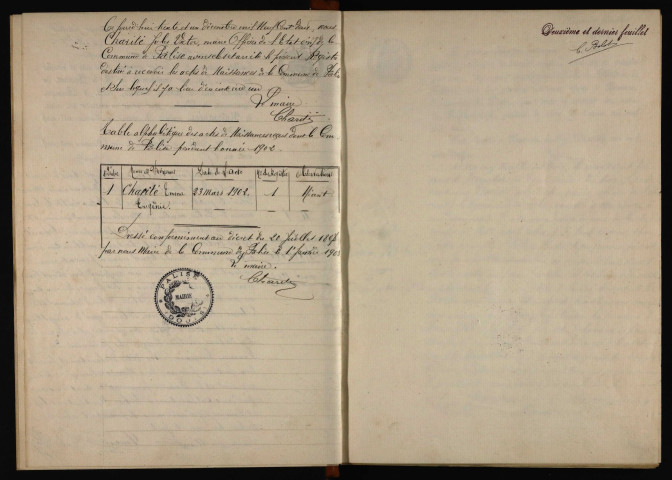 Ce jourd'hui trente et un décembre mil neuf cent deux, nous
Charité Jules Victor, maire Officier de l'Etat civil de la
Commune de Palise avons clos et arrêté le présent Registre
destiné à recevoir les actes de Naissances de la Commune de Palise
et sur lequel il y a
Le maire
Charité
Table alphabétique des actes de Naissances reçus dans la Com-
mune de Palise pendant l'année 1902
Noms et Prénoms
Date de l'Acte
Nos du Registre
Observations
1
Charité Emma
Eugénie.
23 mars 1902
1
Néant
Dressé conformément au décret du 20 Juillet
par nous Maire de la Commune de Palise le 1er Janvier 1903
Le maire
Charité
PALISE
MAIRIE
DOUBS
Deuxième et dernier feuillet